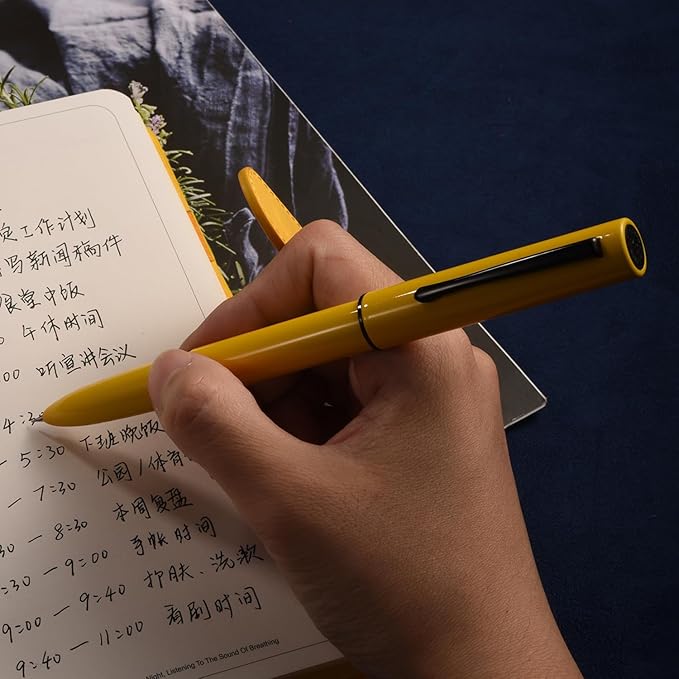 定工作计划
写新闻稿件
食堂中饭
0 午休时间
00 听宣讲会议
4:30
- 5:30 下班晚饭
- 7:30 公园/体育
30 - 8:30 本周复盘
:30 - 9:00 手帐时间
9:00 - 9:40 护肤、洗漱
9:40 - 11:00 看剧时间
Night, Listening To The Sound Of Breathing